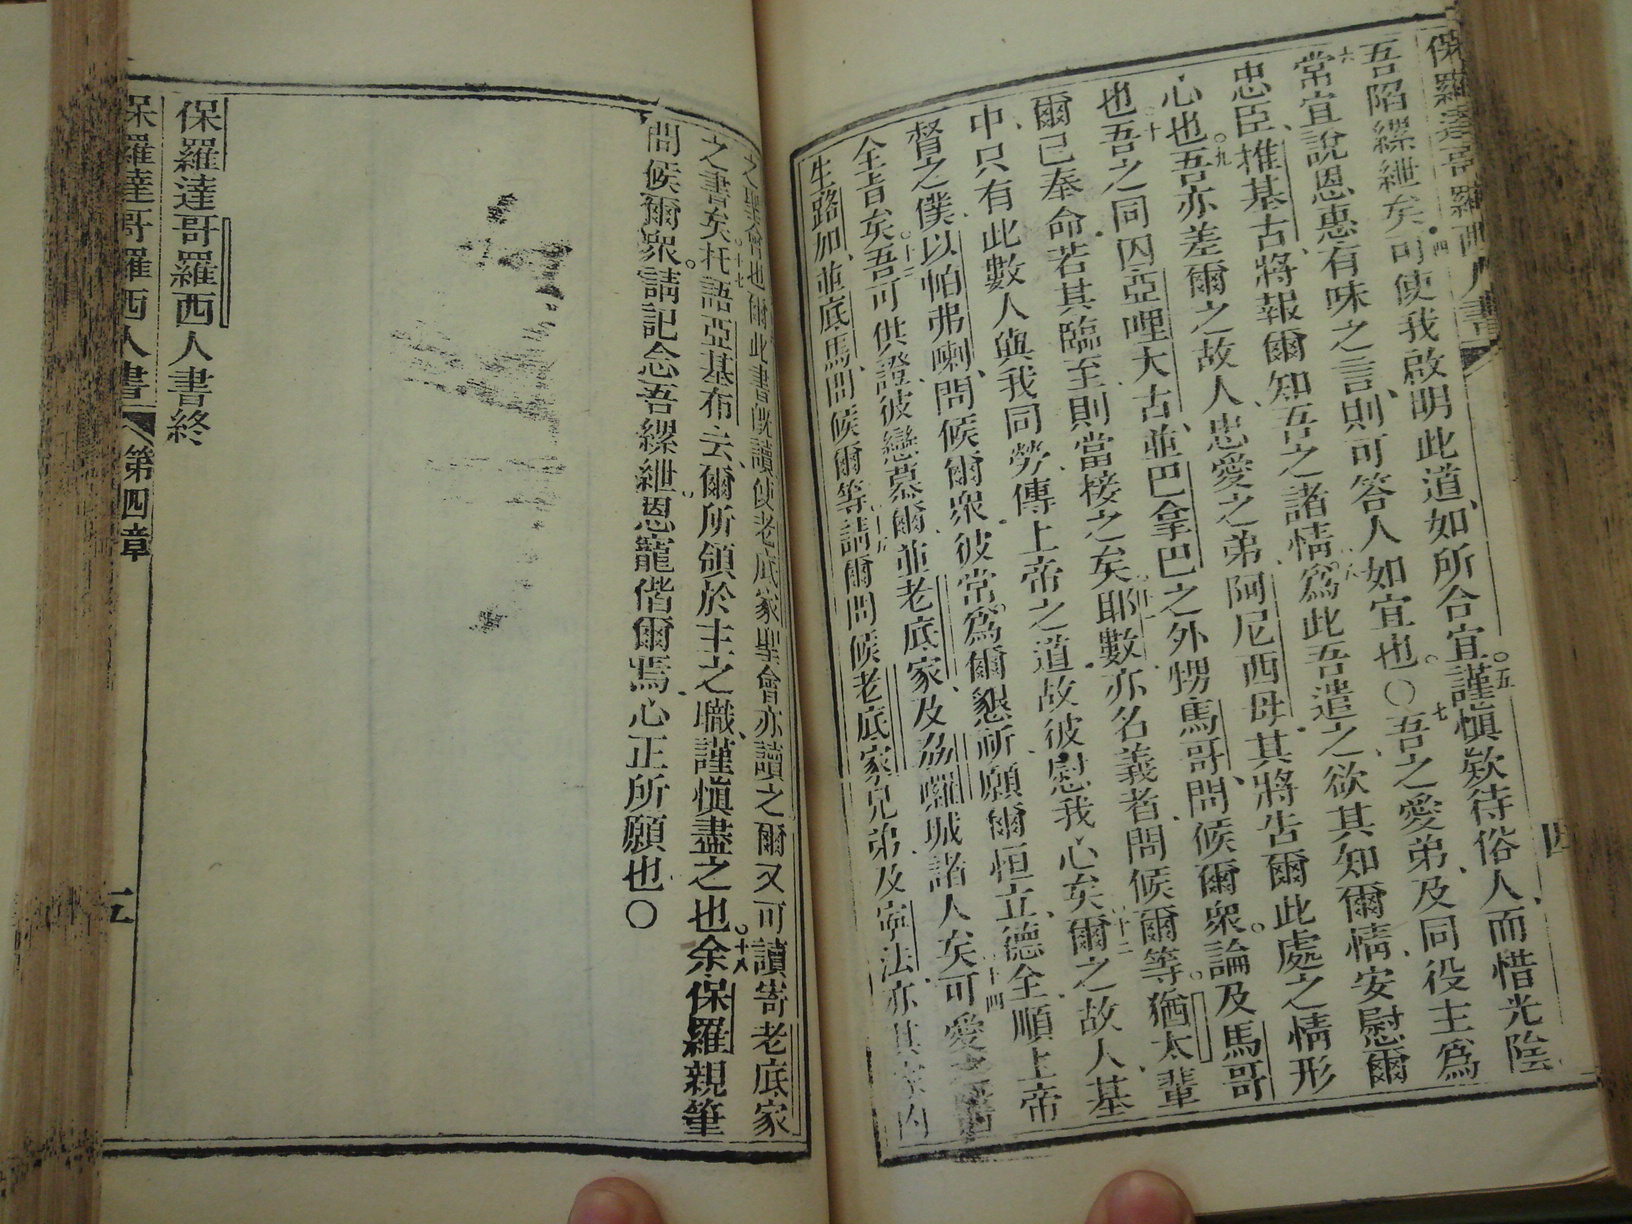 保羅達哥羅西人書
四
吾陷縲紲矣可使我啟明此道、如所合宜。五謹慎欵待俗人、而惜光陰
六常宜說恩惠有味之言、則可答人如宜也。〇七吾之愛弟、及同役主為
忠臣、推基古、將報爾知吾之諸情。八為此吾遣之、欲其知爾情、安慰爾
心也。九吾亦差爾之故人、忠愛之弟阿尼西母、其將告爾此處之情形
也。十吾之同囚亞哩大古、並巴拿巴之外甥馬哥、問候爾眾。論及馬哥
爾已奉命、若其臨至、則當接之矣。耶數亦名義者、問候爾等。猶太輩
中、只有此數人與我同勞、傳上帝之道、故彼慰我心矣。十二爾之故人基
督之僕以帕弗喇、問候爾眾、彼常為爾懇祈、願爾恒立德、全順上帝
全旨矣。十三吾可供證、彼戀慕爾、並老底家、及刕囉城諸人矣。十四可愛之醫
生路加、並底馬、問候爾等。請爾問候老底家兄弟、及寧法、亦其家內
之聖會也。爾此書既讀、使老底家聖會亦讀之、爾又可讀寄老底家
之書矣。十七托語亞基布云、爾所領於主之職、謹慎盡之也。十八余保羅親筆
問候爾眾。請記念吾縲紲、恩寵偕爾焉、心正所願也〇
保羅達哥羅西人書終
保羅達哥羅西人書
第四章
五